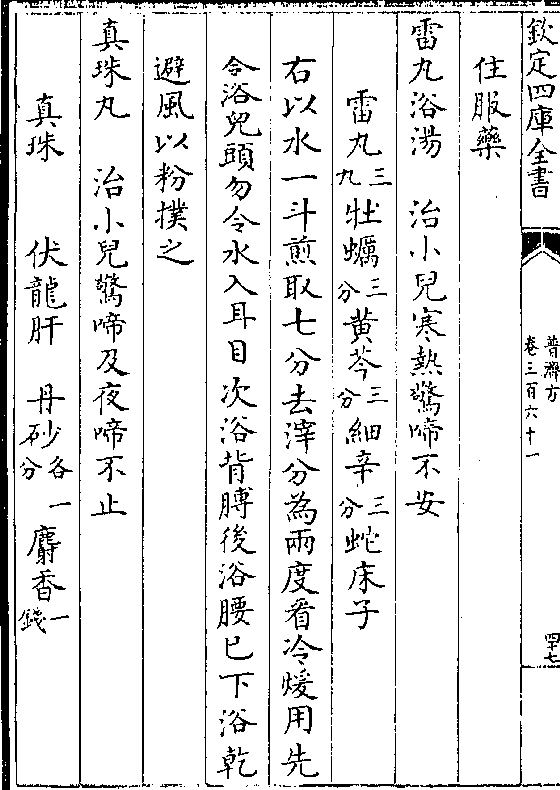 欽定四庫全書
普濟方
卷三百六十一
四十七
住服藥
雷丸浴湯 治小兒寒熱驚啼不安
雷丸三九牡蠣三分黄芩三分細辛三分蛇床子
右以水一斗煎取七分去滓分為兩度看冷煖用先
令浴兒頭勿令水入耳目次浴背膊後浴腰已下浴乾
避風以粉撲之
真珠丸 治小兒驚啼及夜啼不止
真珠 伏龍肝 丹砂各一分麝香一錢